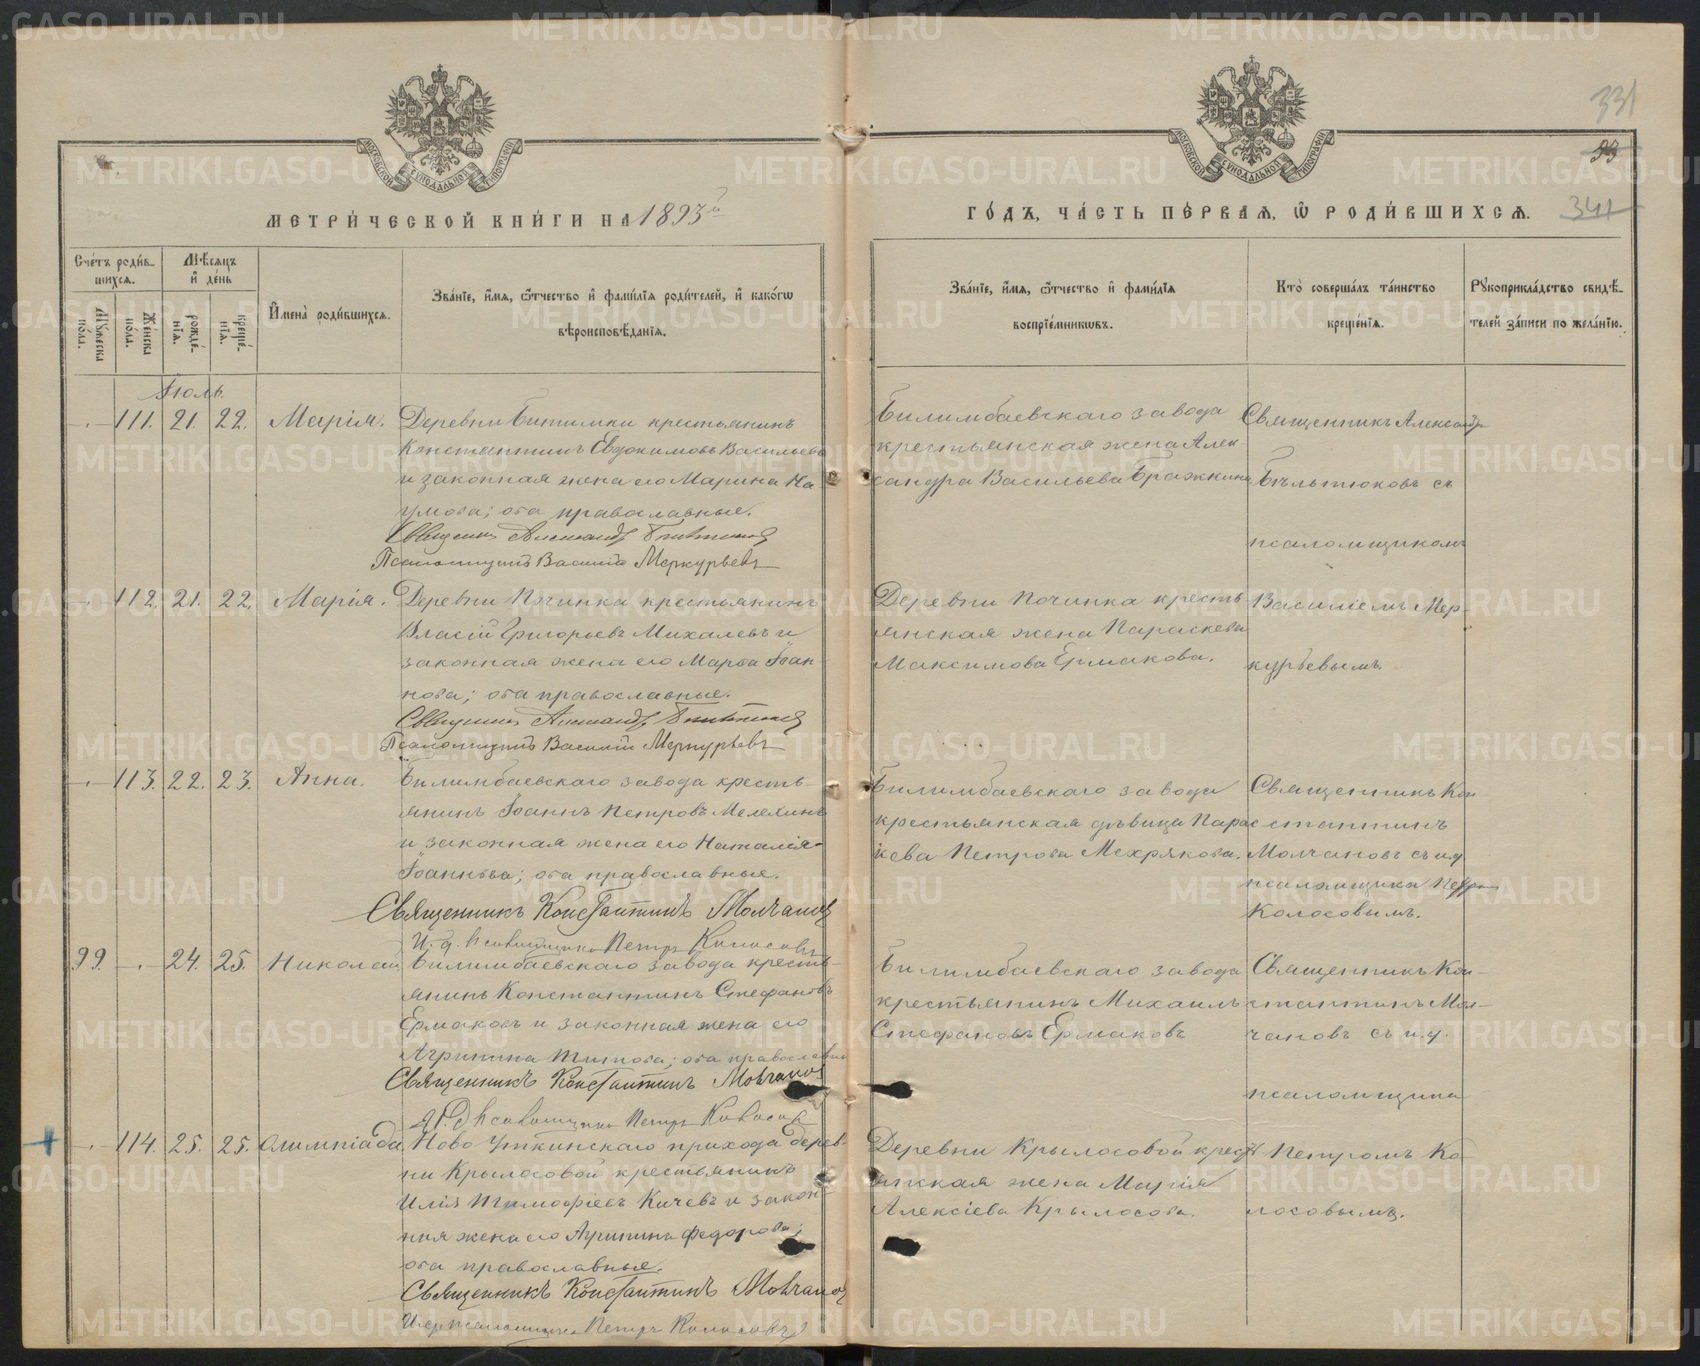 331
99
341
МЕТРИ́ЧЕСКОЙ КНИ́ГИ НА 1893й
ГО́ДЪ, ЧА́СТЬ ПЕ́РВАЯ, Ѽ РОДИ́ВШИХСЯ.
МОСКОВСКОЙ СѴНОДАЛЬНОЙ ТИПОГРАФІИ
МОСКОВСКОЙ СѴНОДАЛЬНОЙ ТИПОГРАФІИ
Сче́тъ роди́вшихся.
Мꙋжеска по́ла.
Же́нска по́ла.
Мѣ́сяцъ и҆ де́нь
рожде́нїя.
креще́нїя.
И҆мена̀ роди́вшихся.
Зва́нїе, и҆́мя, ѻ҆́тчество и҆ фами́лїя роди́телей, и҆ како́гѡ
вѣроисповѣ́данїя.
Зва́нїе, и҆́мя, ѻ҆́тчество и҆ фами́лїя
воспрїе́мникѡвъ.
Кто̀ соверша́лъ та́инство
креще́нїя.
Рꙋкоприкла́дство свидѣ́-
телей за́писи по жела́нїю.
Іюль
- 111. 21. 22. Марія.
Деревни Битимки крестьянинъ
Константинъ Евдокимовъ Васильевъ
и законная жена его Марина На
умова; оба православные.
Священникъ Александръ
Псаломщикъ Василій Меркурьевъ
Билимбаевскаго завода
крестьянская жена Алек-
сандра Васильева Бражкина
Священникъ Александръ
Бѣльтюковъ съ
псаломщикомъ
- 112. 21. 22. Марія.
Деревни Починка крестьянинъ
Власій Григорьевъ Михалевъ и
законная жена его Марѳа Іоан-
нова; оба православные.
Священникъ Александръ
Псаломщикъ Василій Меркурьевъ
Деревни Починка кресть-
янская жена Параскева
Максимова Ермакова.
Василіемъ Мер-
курьевымъ.
- 113. 22. 23. Анна.
Билимбаевскаго завода кресть-
янинъ Іоаннъ Петровъ Мелехинъ
и законная жена его Наталія
Іоаннова; оба православные.
Священникъ Константинъ Молчановъ
И. д. псаломщика Петръ Колосовъ
Билимбаевскаго завода
крестьянская дѣвица Парас
кева Петрова Мехрякова.
Священникъ Кон
стантинъ
Молчановъ съ и.д.
псаломщика Петром
Колосовымъ.
99. - 24. 25. Николай
Билимбаевскаго завода кресть-
янинъ Константинъ Стефановъ
Ермаковъ и законная жена его
Агрипина Титова; оба православные
Священникъ Константинъ Молчановъ
И. Д. псаломщика Петръ Колосовъ
Билимбаевскаго завода
крестьянинъ Михаилъ
Стефановъ Ермаковъ
Священникъ Кон-
стантинъ Мол-
чановъ съ и.д.
псаломщика
- 114. 25. 25. Олимпіада
Ново Уткинскаго прихода дерев-
ни Крылосовой крестьянинъ
Илія Тимофіевъ Кичевъ и закон-
ная жена его Агрипина Федорова;
оба православные.
Священникъ Константинъ Молчановъ
И. д. псаломщика Петръ Колосовъ
Деревни Крылосовой крест
янская жена Марія
Алексіева Крылосова.
Петромъ Ко-
лосовымъ.
METRIKI.GASO-URAL.RU